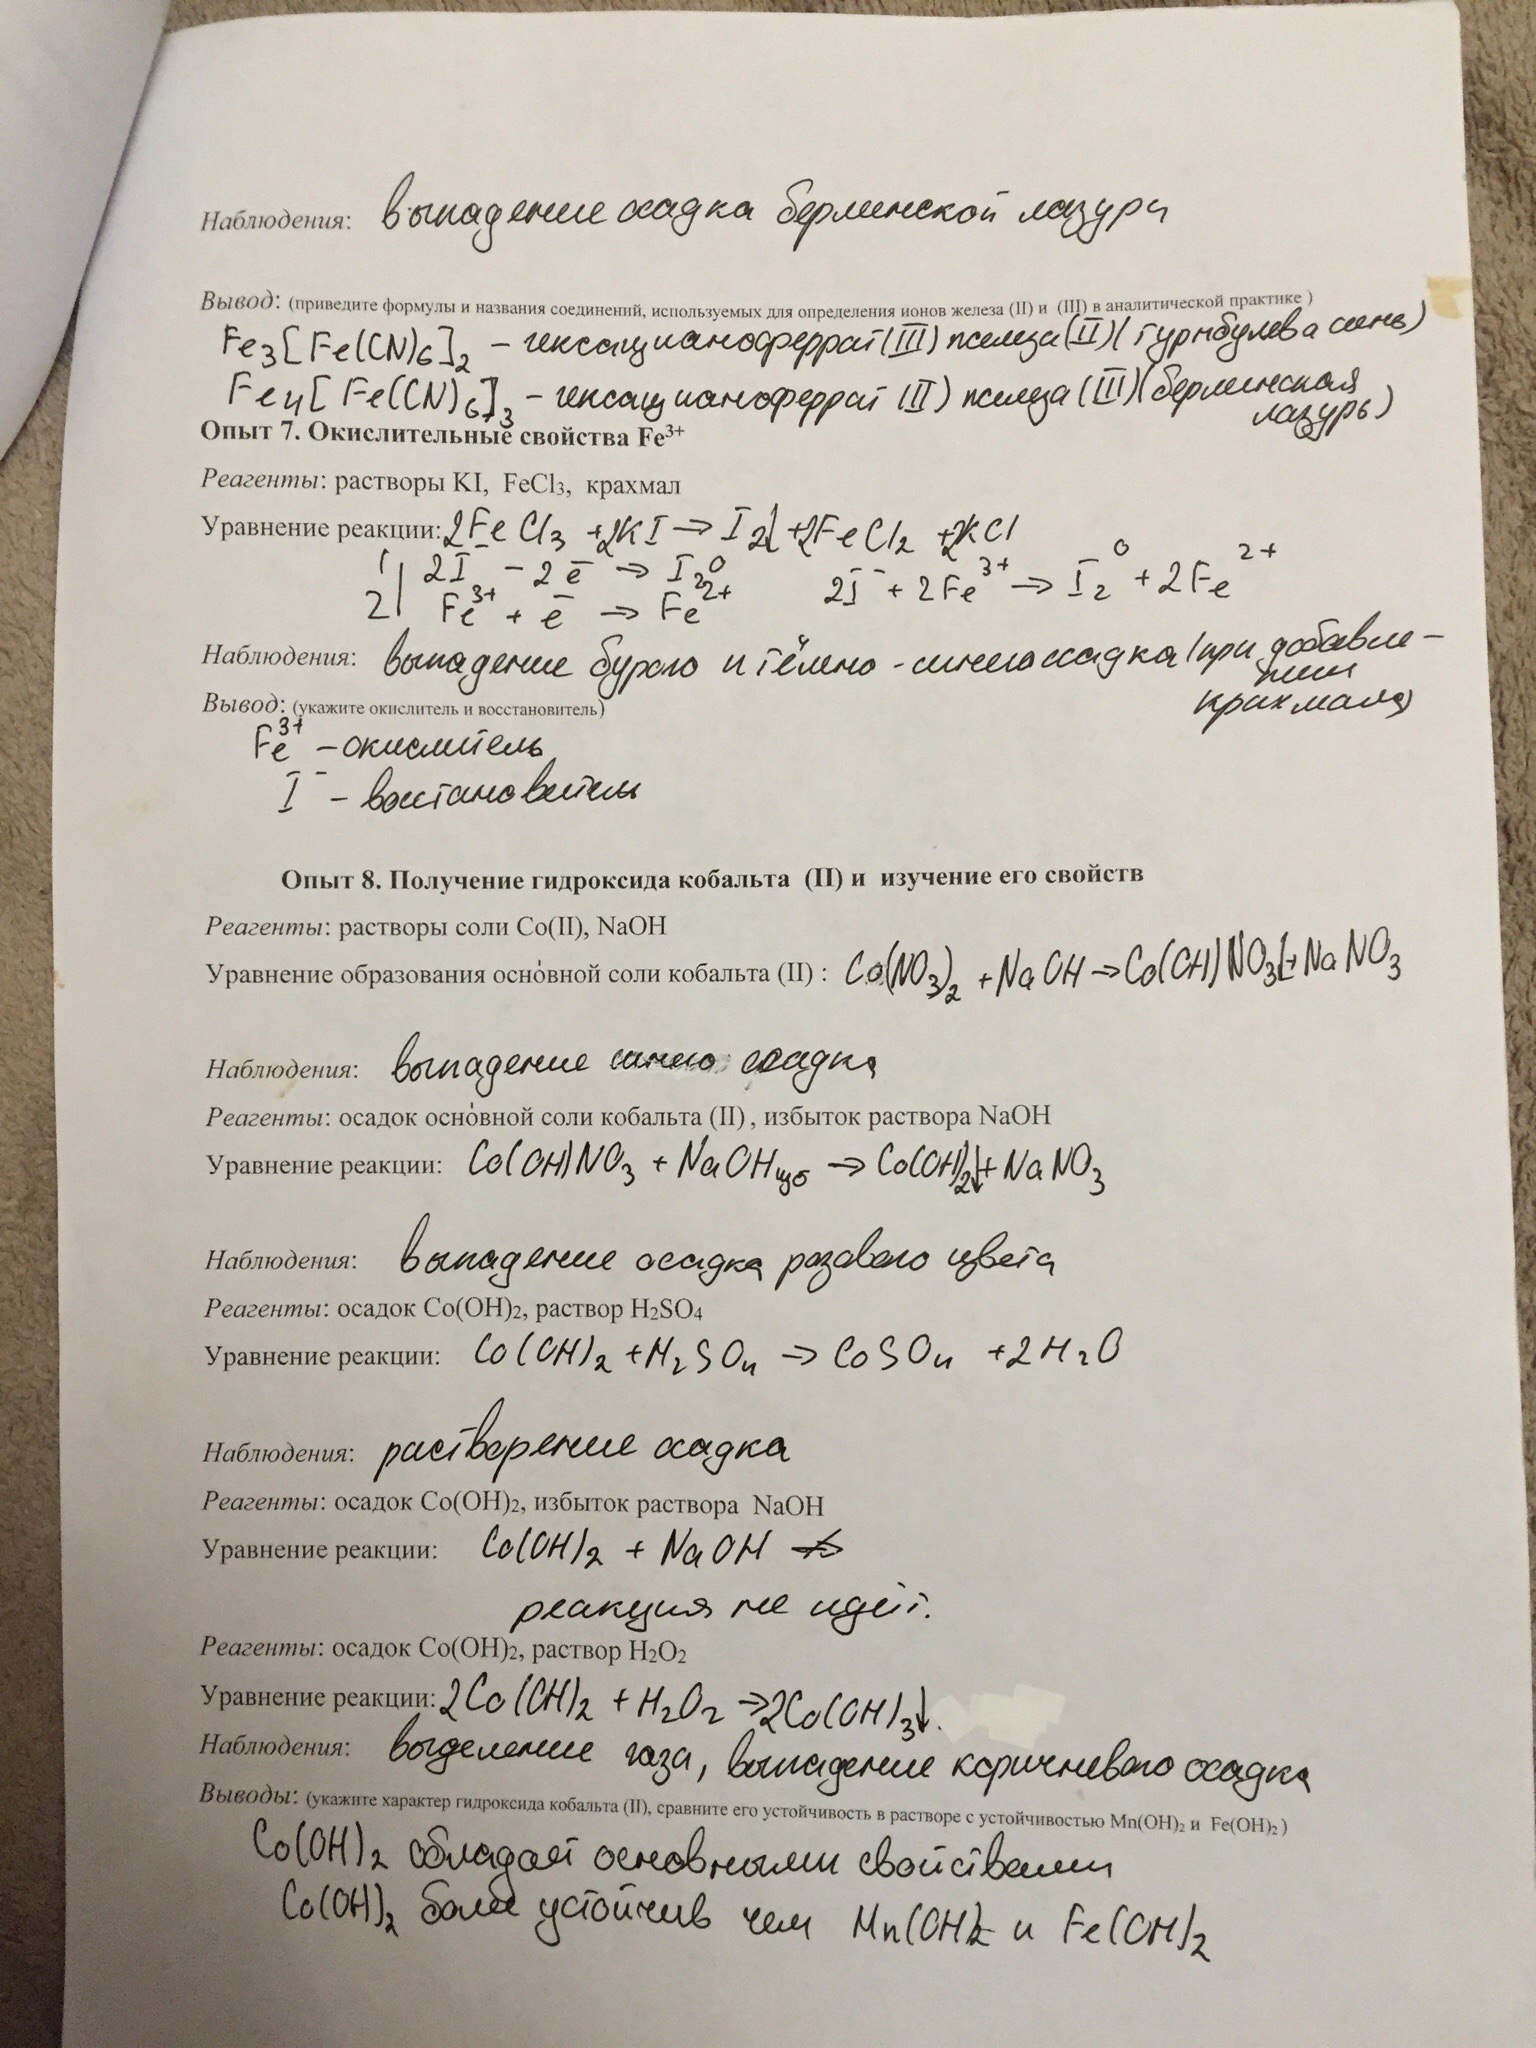 Наблюдения: выпадение осадка берлинской лазури
Вывод: (приведите формулы и названия соединений, используемых для определения ионов железа (II) и (III) в аналитической практике )
Fe₃[Fe(CN)₆]₂ – гексацианоферрат (III) железа (II) (турнбулева синь)
Fe₄[Fe(CN)₆]₃ – гексацианоферрат (II) железа (III) (берлинская
лазурь)
Опыт 7. Окислительные свойства Fe³⁺
Реагенты: растворы KI, FeCl₃, крахмал
Уравнение реакции: 2FeCl₃ + 2KI → I₂↓ + 2FeCl₂ + 2KCl
1 | 2I⁻ – 2ē → I₂⁰ 2I⁻ + 2Fe³⁺ → I₂⁰ + 2Fe²⁺
2 | Fe³⁺ + ē → Fe²⁺
Наблюдения: выпадение бурого и тёмно-синего осадка (при добавле-
нии
крахмала)
Вывод: (укажите окислитель и восстановитель)
Fe³⁺ – окислитель
I⁻ – восстановитель
Опыт 8. Получение гидроксида кобальта (II) и изучение его свойств
Реагенты: растворы соли Co(II), NaOH
Уравнение образования осно́вной соли кобальта (II) : Co(NO₃)₂ + NaOH → Co(OH)NO₃↓ + NaNO₃
Наблюдения: выпадение синего осадка
Реагенты: осадок осно́вной соли кобальта (II) , избыток раствора NaOH
Уравнение реакции: Co(OH)NO₃ + NaOH изб → Co(OH)₂↓ + NaNO₃
Наблюдения: выпадение осадка розового цвета
Реагенты: осадок Co(OH)₂, раствор H₂SO₄
Уравнение реакции: Co(OH)₂ + H₂SO₄ → CoSO₄ + 2H₂O
Наблюдения: растворение осадка
Реагенты: осадок Co(OH)₂, избыток раствора NaOH
Уравнение реакции: Co(OH)₂ + NaOH ↛
реакция не идёт.
Реагенты: осадок Co(OH)₂, раствор H₂O₂
Уравнение реакции: 2Co(OH)₂ + H₂O₂ → 2Co(OH)₃↓.
Наблюдения: выделение газа, выпадение коричневого осадка
Выводы: (укажите характер гидроксида кобальта (II), сравните его устойчивость в растворе с устойчивостью Mn(OH)₂ и Fe(OH)₂ )
Co(OH)₂ обладает основными свойствами
Co(OH)₂ более устойчив чем Mn(OH)₂ и Fe(OH)₂